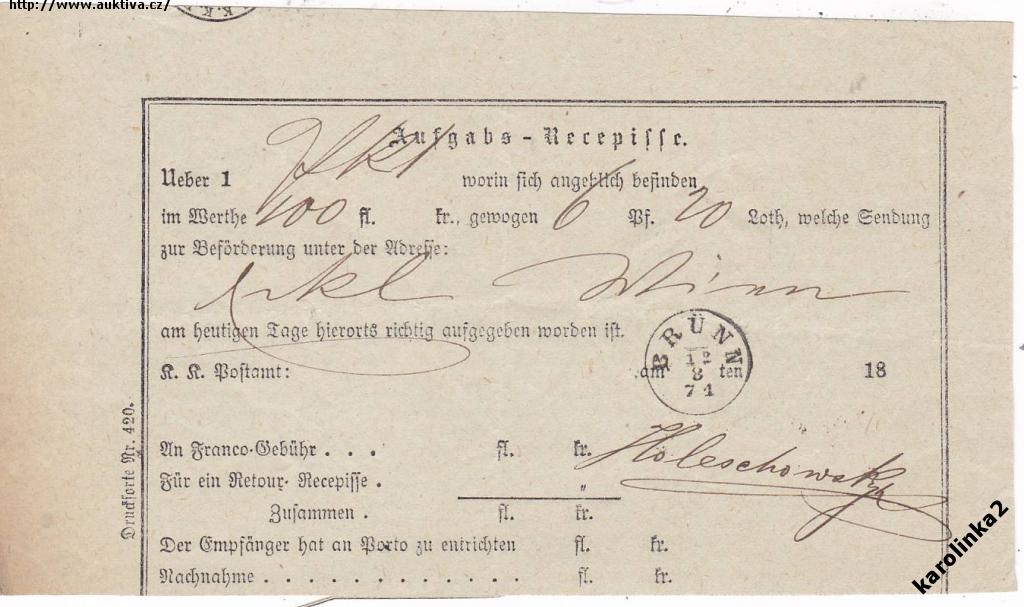 http://www.auktiva.cz/
K. K.
Aufgabs-Recepisse.
Ueber 1 Pkt worin sich angeblich befinden
im Werthe 100 fl. kr., gewogen 6 Pf. 20 Loth, welche Sendung
zur Beförderung unter der Adresse:
Wien
am heutigen Tage hierorts richtig aufgegeben worden ist.
BRÜNN
12
8
71
K. K. Postamt: am ten 18
An Franco-Gebühr . . . fl. kr.
Holeschowsky
Für ein Retour-Recepisse . "
Zusammen . fl. kr.
Der Empfänger hat an Porto zu entrichten fl. kr.
Nachnahme . . . . . . . . . . . . fl. kr.
Drucksorte Nr. 420.
karolinka2